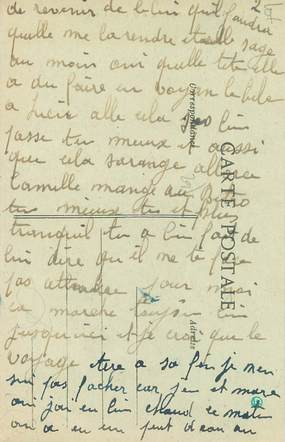 de revenir de lui qu'il faudra
quelle me la rendre et elle sage
au moin oui quelle tete elle
a du faire en voyan le bebe
a Lucie alle cela bien
passe tu mieux et aussi
que cela sarange albere
Camille mange au
tu mieux tu et plus
tranquil tu a bin fait de
lui dire qu il me te fase
pas attendre pour moi
ca marche toujour bin
jusqu'ici et je crois que le
voyage tire a sa fin je men
sui pas facher car jen et mare
oui jai eu bin chaud ce matin
on a eu un peut deau au
2
CARTE POSTALE
Correspondance
Adresse